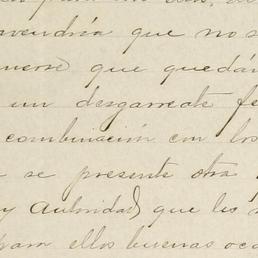 para los
vendría que no s
nerse) que quedán
un desgarrate fe
combinación con los
se presente otra
y Autoridad) que les
para ellos buenas oca